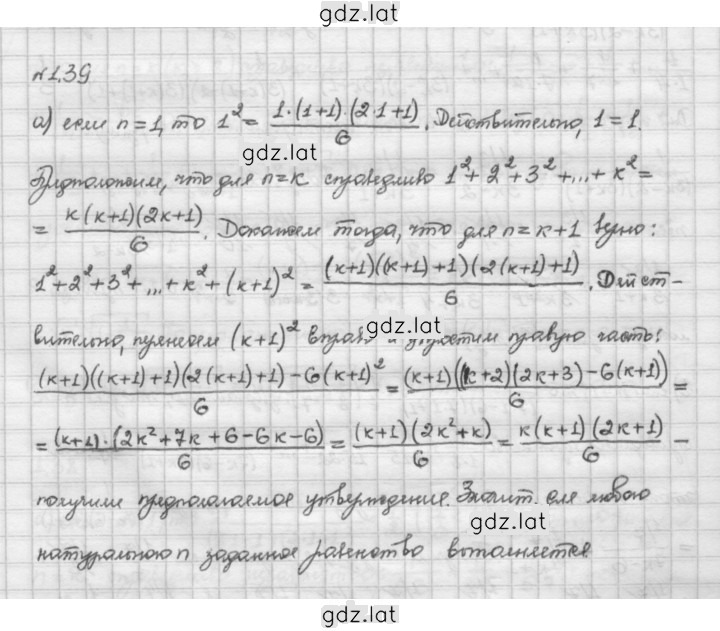 gdz.lat
№1.39
а) если n=1, то 1² = 1·(1+1)·(2·1+1)/6. Действительно, 1=1.
gdz.lat
Предположим, что для n=к справедливо 1²+2²+3²+...+к²=
= к(к+1)(2к+1)/6. Докажем тогда, что для n=к+1 верно:
1²+2²+3²+...+к²+(к+1)² = (к+1)((к+1)+1)(2(к+1)+1)/6. Дейст-
вительно, перенесем (к+1)² вправо и упростим правую часть:
gdz.lat
(к+1)((к+1)+1)(2(к+1)+1)-6(к+1)²/6 = (к+1)((к+2)(2к+3)-6(к+1))/6 =
= (к+1)·(2к²+7к+6-6к-6)/6 = (к+1)(2к²+к)/6 = к(к+1)(2к+1)/6 –
получили предполагаемое утверждение. Значит для любого
gdz.lat
натурального n заданное равенство выполняется
gdz.lat